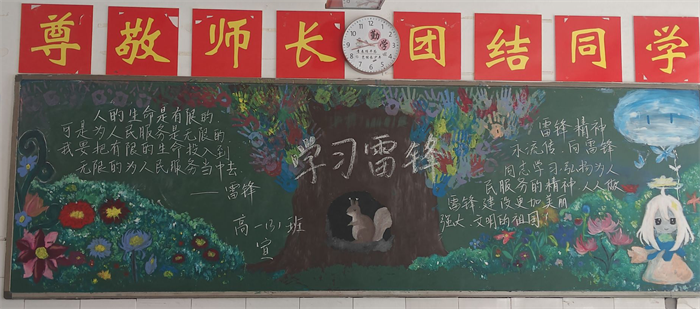 尊敬师长 团结同学
勤学
学习雷锋
人的生命是有限的
可是为人民服务是无限的
我要把有限的生命投入到
无限的为人民服务当中去
——雷锋
高一(3)班
宣
雷锋精神
永流传,向雷锋
同志学习弘扬为人
民服务的精神,人人做
雷锋,建设更加美丽
强大、文明的祖国!